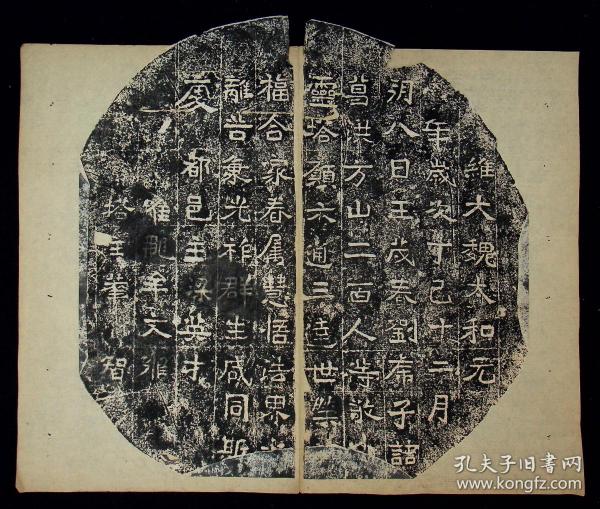 維大魏太和元
年歲次丁巳十二月
朔八日王茂春劉席子詣
葛洪方山二百人等敬
靈塔願六通三達世榮
福合家眷屬慧悟法界
離苦衆光祚群生咸同斯
慶 都邑主梁英才
維那牟文雍
塔主 智
孔夫子旧书网
www.kongfz.com